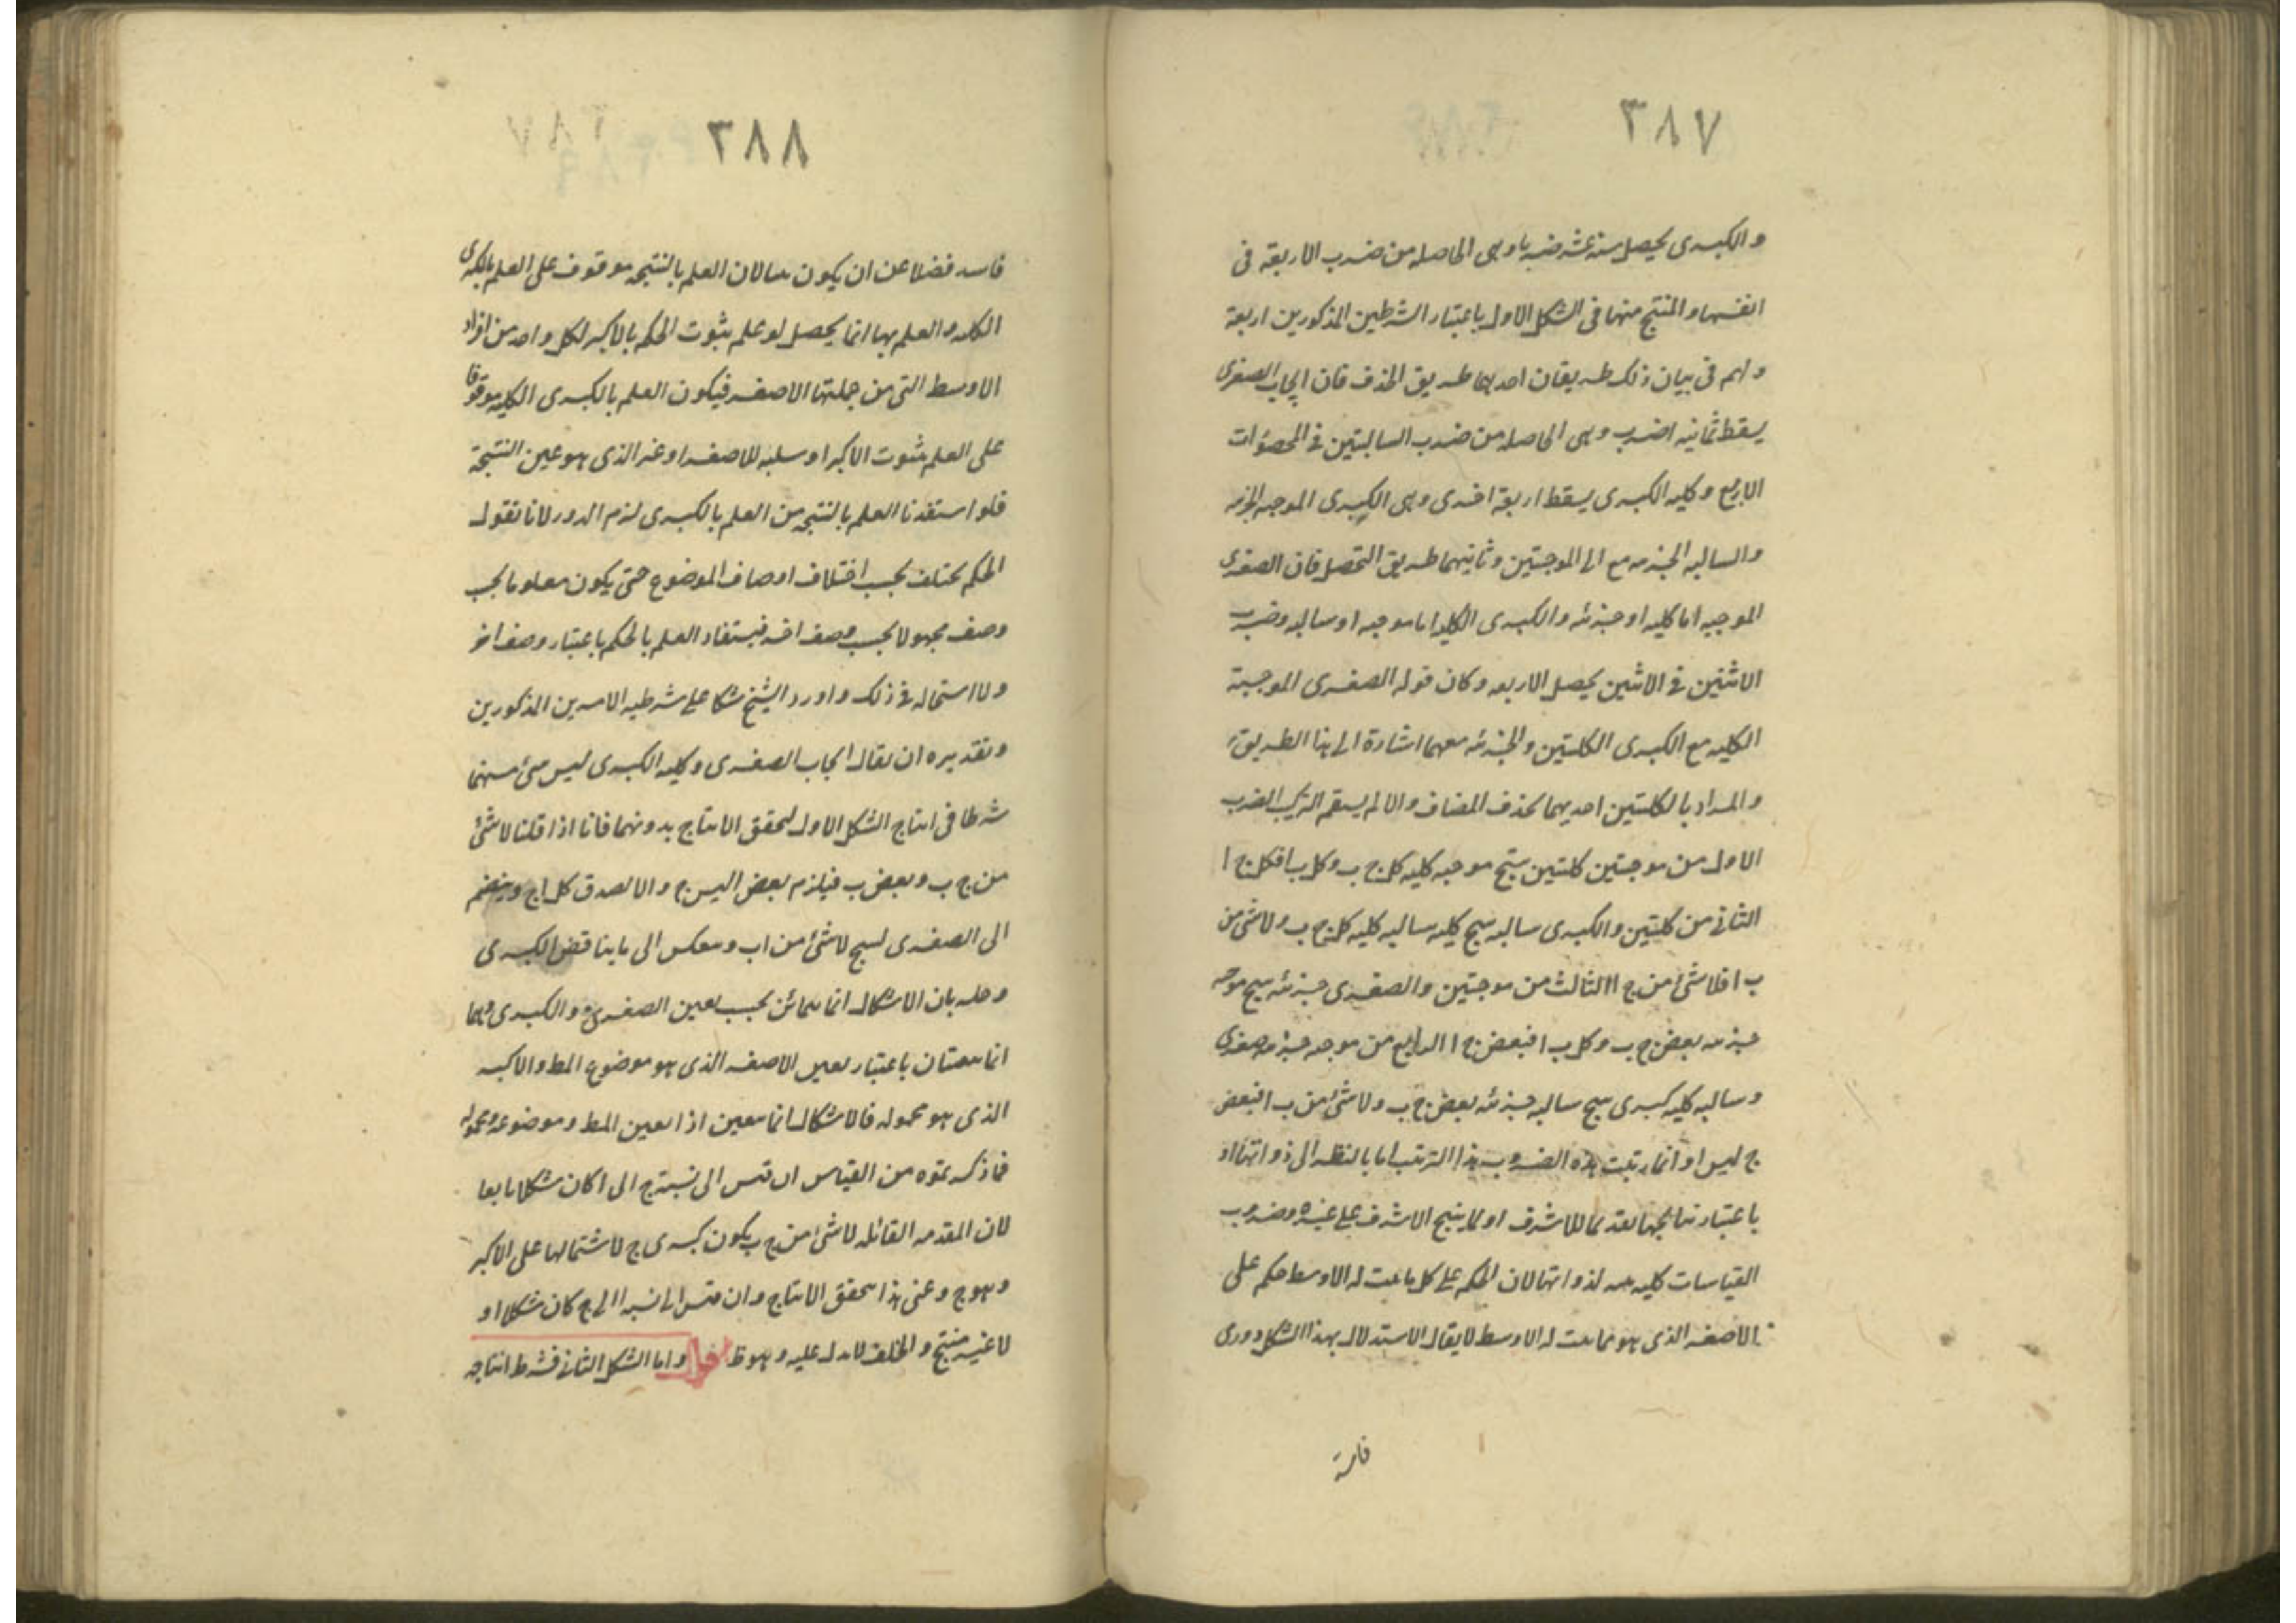 ٣٨٧
والكبرى يحصل ستة عشر ضربا وهى الحاصله من ضرب الاربعة فى
انفسها والمنتج منها فى الشكل الاول باعتبار الشرطين المذكورين اربعة
ولهم فى بيان ذلك طريقان احدهما طريق الحذف فان ايجاب الصغرى
يسقط ثمانيه اضرب وهى الحاصله من ضرب السالبتين فى المحصورات
الاربع وكليه الكبرى يسقط اربعة اخرى وهى الكبرى الموجبه الجزئيه
والسالبه الجزئيه مع الموجبتين وثانيهما طريق التحصيل فان الصغرى
الموجبه اما كليه او جزئيه والكبرى الكليه اما موجبه او سالبه وضرب
الاثنين فى الاثنين يحصل الاربعه وكان قوله الصغرى الموجبة
الكليه مع الكبرى الكليتين والجزئيه معهما اشارة الى هذا الطريق
والمراد بالكليتين احديهما بحذف المضاف والا لم يستقم الترتيب الضرب
الاول من موجبتين كليتين ينتج موجبه كليه كل ج ب وكل ب ا فكل ج ا
الثانى من كليتين والكبرى سالبه ينتج كليه سالبه كليه كل ج ب ولا شئ من
ب ا فلا شئ من ج ا الثالث من موجبتين والصغرى جزئيه ينتج موجبه
جزئيه بعض ج ب وكل ب ا فبعض ج ا الرابع من موجبه جزئيه صغرى
وسالبه كليه كبرى ينتج سالبه جزئيه بعض ج ب ولا شئ من ب ا فبعض
ج ليس ا وانما رتبت هذه الضروب هذا الترتيب اما بالنظر الى ذواتها او
باعتبار نتايجها تقديما للاشرف او لما ينتج الاشرف على غيره وضروب
القياسات كليه بينه لذواتها لان الحكم على كل ما يثبت له الاوسط حكم على
الاصغر الذى هو مما يثبت له الاوسط لا يقال الاستدلال بهذا الشكل دورى
فاسد
٣٨٨
فاسد فضلا عن ان يكون بينا لان العلم بالنتيجه موقوف على العلم بالكبرى
الكليه والعلم بها انما يحصل لو علم بثبوت الحكم بالاكبر لكل واحد من افراد
الاوسط التى من جملتها الاصغر فيكون العلم بالكبرى الكليه موقوفا
على العلم بثبوت الاكبر او سلبه للاصغر او عنه الذى هو عين النتيجة
فلو استفدنا العلم بالنتيجه من العلم بالكبرى لزم الدور لانا نقول
الحكم يختلف بحسب اختلاف اوصاف الموضوع حتى يكون معلوما بحسب
وصف مجهولا بحسب وصف اخر فيستفاد العلم بالحكم باعتبار وصف اخر
ولا استحاله فى ذلك واورد الشيخ شكا على شرطيه الامرين المذكورين
وتقديره ان يقال ايجاب الصغرى وكليه الكبرى ليس شئ منهما
شرطا فى انتاج الشكل الاول لتحقق الانتاج بدونهما فانا اذا قلنا لا شئ
من ج ب وبعض ب ا فيلزم بعض ا ليس ج والا لصدق كل ا ج وينضم
الى الصغرى لينتج لا شئ من ا ب وينعكس الى ما يناقض الكبرى
وحله بان الاشكال انما يتمايز بحسب تعين الصغرى والكبرى وهما
انما يتعينان باعتبار تعين الاصغر الذى هو موضوع المط والاكبر
الذى هو محموله فالاشكال انما يتعين اذا تعين المط وموضوعه ومحموله
فما ذكرتموه من القياس ان قيس الى نسبة ج الى ا كان شكلا رابعا
لان المقدمه القائله لا شئ من ج ب يكون كبرى ج لاشتمالها على الاكبر
وهو ج وعنى هذا يتحقق الانتاج وان قيس الى نسبه ا الى ج كان شكلا او
لا غير منتج والخلف لا يدل عليه وهو ظ قوله واما الشكل الثانى فشرط انتاجه